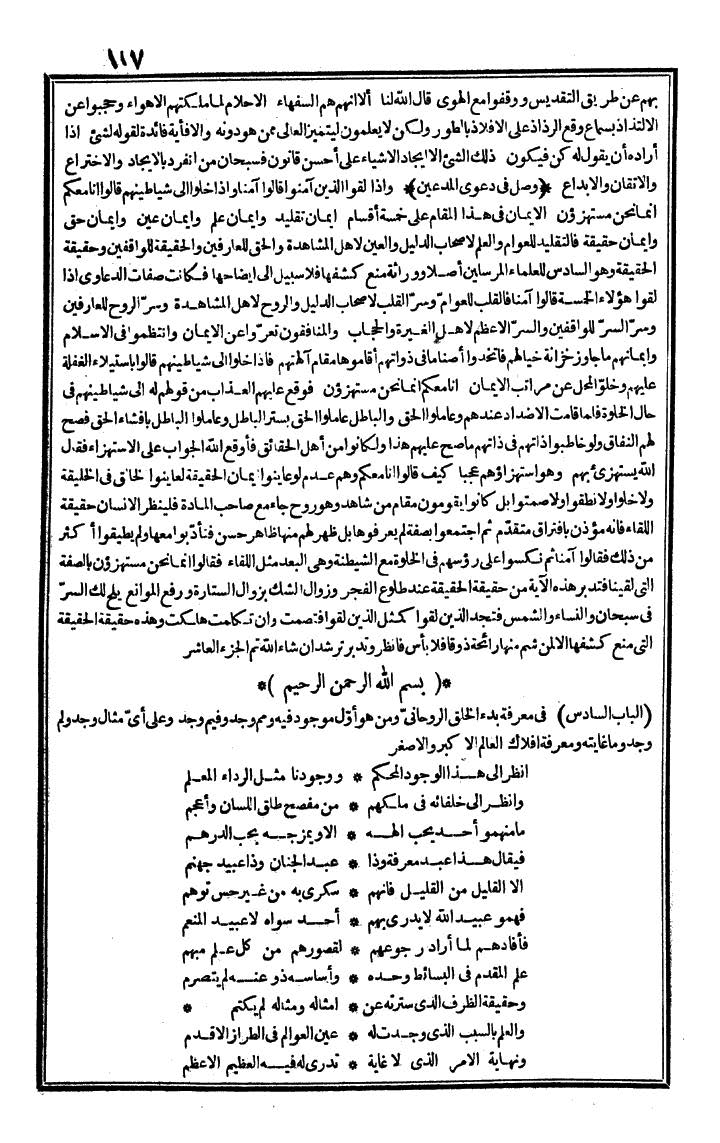 ١١٧
بهم عن طريق التقديس ووقفوا مع الهوى قال الله لنا ألا انهم هم السفهاء الاحلام لما ملكتهم الاهواء وحجبوا عن
الالتذاذ بسماع وقع الرذاذ على الافلاذ بالطور ولكن لا يعلمون ليتميز العالى ممن هو دونه والا فأية فائدة لقوله لشئ اذا
أراده أن يقول له كن فيكون ذلك الشئ الا ايجاد الاشياء على أحسن قانون فسبحان من انفرد بالايجاد والاختراع
والاتقان والابداع ﴿وصل فى دعوى المدعين﴾ واذا لقوا الذين آمنوا قالوا آمنا واذا خلوا الى شياطينهم قالوا انا معكم
انما نحن مستهزؤن الايمان فى هذا المقام على خمسة أقسام ايمان تقليد وايمان علم وايمان عين وايمان حق
وايمان حقيقة فالتقليد للعوام والعلم لاصحاب الدليل والعين لاهل المشاهدة والحق للعارفين والحقيقة للواقفين وحقيقة
الحقيقة وهو السادس للعلماء المرسلين أصلا ووراثة منع كشفها فلا سبيل الى ايضاحها فكانت صفات الدعاوى اذا
لقوا هؤلاء الخمسة قالوا آمنا فالقلب للعوام وسرّ القلب لاصحاب الدليل والروح لاهل المشاهدة وسرّ الروح للعارفين
وسرّ السرّ للواقفين والسرّ الاعظم لاهل الغيرة والحجاب والمنافقون تعرّوا عن الايمان وانتظموا فى الاسلام
وايمانهم ما جاوز خزانة خيالهم فاتخذوا أصناما فى ذواتهم أقاموها مقام آلهتهم فاذا خلوا الى شياطينهم قالوا باستيلاء الغفلة
عليهم وخلوّ المحل عن مراتب الايمان انا معكم انما نحن مستهزؤن فوقع عليهم العذاب من قولهم له الى شياطينهم فى
حال الخلوة فلما قامت الاضداد عندهم وعاملوا الحق والباطل عاملوا الحق بستر الباطل وعاملوا الباطل بافشاء الحق فصح
لهم النفاق ولو خاطبوا ذاتهم فى ذاتهم ما صح عليهم هذا ولكانوا من أهل الحقائق فأوقع الله الجواب على الاستهزاء فقال
الله يستهزئ بهم وهو استهزاؤهم عجبا كيف قالوا انا معكم وهم عدم لو عاينوا ايمان الحقيقة لعاينوا الخالق فى الخليقة
ولا خلوا ولا نطقوا ولا صمتوا بل كانوا يقومون مقام من شاهد وهو روح جاء مع صاحب المادة فلينظر الانسان حقيقة
اللقاء فانه مؤذن بافتراق متقدّم ثم اجتمعوا بصفة لم يعرفوها بل ظهر لهم منها ظاهر حسن فتأدّبوا معها ولم يطيقوا أكثر
من ذلك فقالوا آمنا ثم نكسوا على رؤسهم فى الخلوة مع الشيطنة وهى البعد مثل اللقاء فقالوا انما نحن مستهزؤن بالصفة
التى لقينا فتدبر هذه الآية من حقيقة الحقيقة عند طلوع الفجر وزوال الشك بزوال الستارة ورفع الموانع يلح لك السرّ
فى سبحان والنساء والشمس فتجد الذين لقوا كمثل الذين لقوا فتصمت وان تكلمت هلكت وهذه حقيقة الحقيقة
التى منع كشفها الا لمن شم منها رائحة ذوقا فلا بأس فانظر وتدبر ترشد ان شاء الله تم الجزء العاشر
*( بسم الله الرحمن الرحيم )*
(الباب السادس) فى معرفة بدء الخلق الروحانىّ ومن هو أوّل موجود فيه ومم وجد وفيم وجد وعلى أىّ مثال وجد ولم
وجد وما غايته ومعرفة افلاك العالم الاكبر والاصغر
انظر الى هذا الوجود المحكم * ووجودنا مثل الرداء المعلم
وانظر الى خلفائه فى ملكهم * من مفصح طلق اللسان وأعجم
ما منهمو أحد يحب الهه * الا ويمزجه بحب الدرهم
فيقال هذا عبد معرفة وذا * عبد الجنان وذا عبيد جهنم
الا القليل من القليل فانهم * سكرى به من غير حس توهم
فهمو عبيد الله لا يدرى بهم * أحد سواه لا عبيد المنعم
فأفادهم لما أراد رجوعهم * لقصورهم من كل علم مبهم
علم المقدم فى البسائط وحده * وأساسه ذو عنه لم يتصرم
وحقيقة الظرف الذى سترته عن * امثاله ومثاله لم يكتم *
والعلم بالسبب الذى وجدت له * عين العوالم فى الطراز الاقدم
ونهاية الامر الذى لا غاية * تدرى له فيه العظيم الاعظم